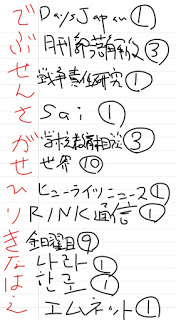 で Days Japan ①
ぶ 月刊 ③
せん 戦争責任研究 ①
さ Sai ①
が 学校 ③
せ 世界 ⑩
ひ ヒューライツニュース ①
り RINK通信 ①
き 金曜日 ⑨
な 나라 ①
は ①
え エムネット ①